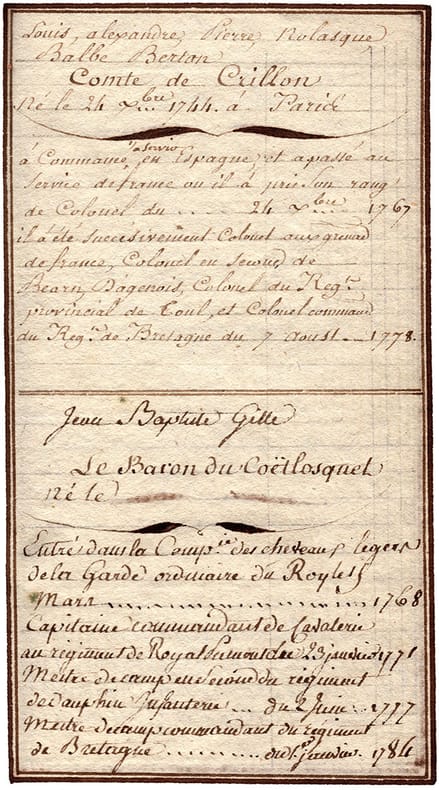 Louis, alexandre, Pierre, Nolasque
Balbe Berton
Comte de Crillon
Né le 24 Xbre 1744. a Paris
à servir
à Commancé, en Espagne, et a passé au
Service de france ou il à pris son rang
de Colonel du .... 24 Xbre 1767
il à été successivement Colonel aux grenad
de france, Colonel en second de
Bearn, Dagenois, Colonel du Regt.
provincial de Toul, et Colonel command
du Regt. de Bretagne du 7 aoust ... 1778.
Jean Baptiste Gille
Le Baron du Coëtlosquet
né le
Entré dans la Compie. des chevaux legers
de la Garde ordinaire du Roy le
Mars ........ 1768
Capitaine commandant de Cavalerie
au régiment de Royal Piemont du 23 janvier 1771
Mestre de camp en Second du régiment
de dauphin Infanterie ... du 2 Juin ... 1777
Mestre de camp commandant du régiment
de Bretagne ........ du 1er. Janvier. 1784